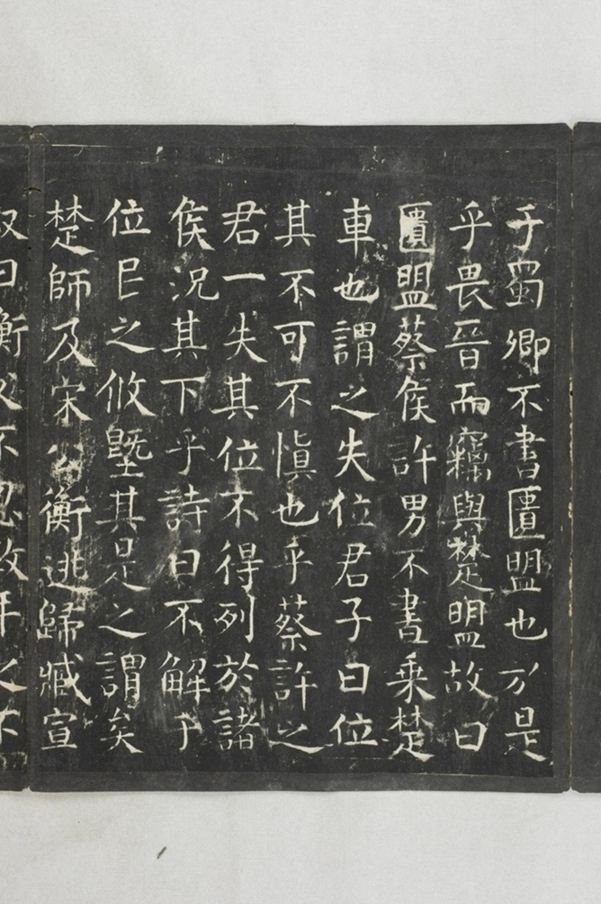 于蜀卿不書匱盟也於是
乎畏晉而竊與楚盟故曰
匱盟蔡侯許男不書乗楚
車也謂之失位君子曰位
其不可不愼也乎蔡許之
君一失其位不得列於諸
侯况其下乎詩曰不解于
位民之攸塈其是之謂矣
楚師及宋公衡逃歸臧宣
叔曰衡父不忍數年之不